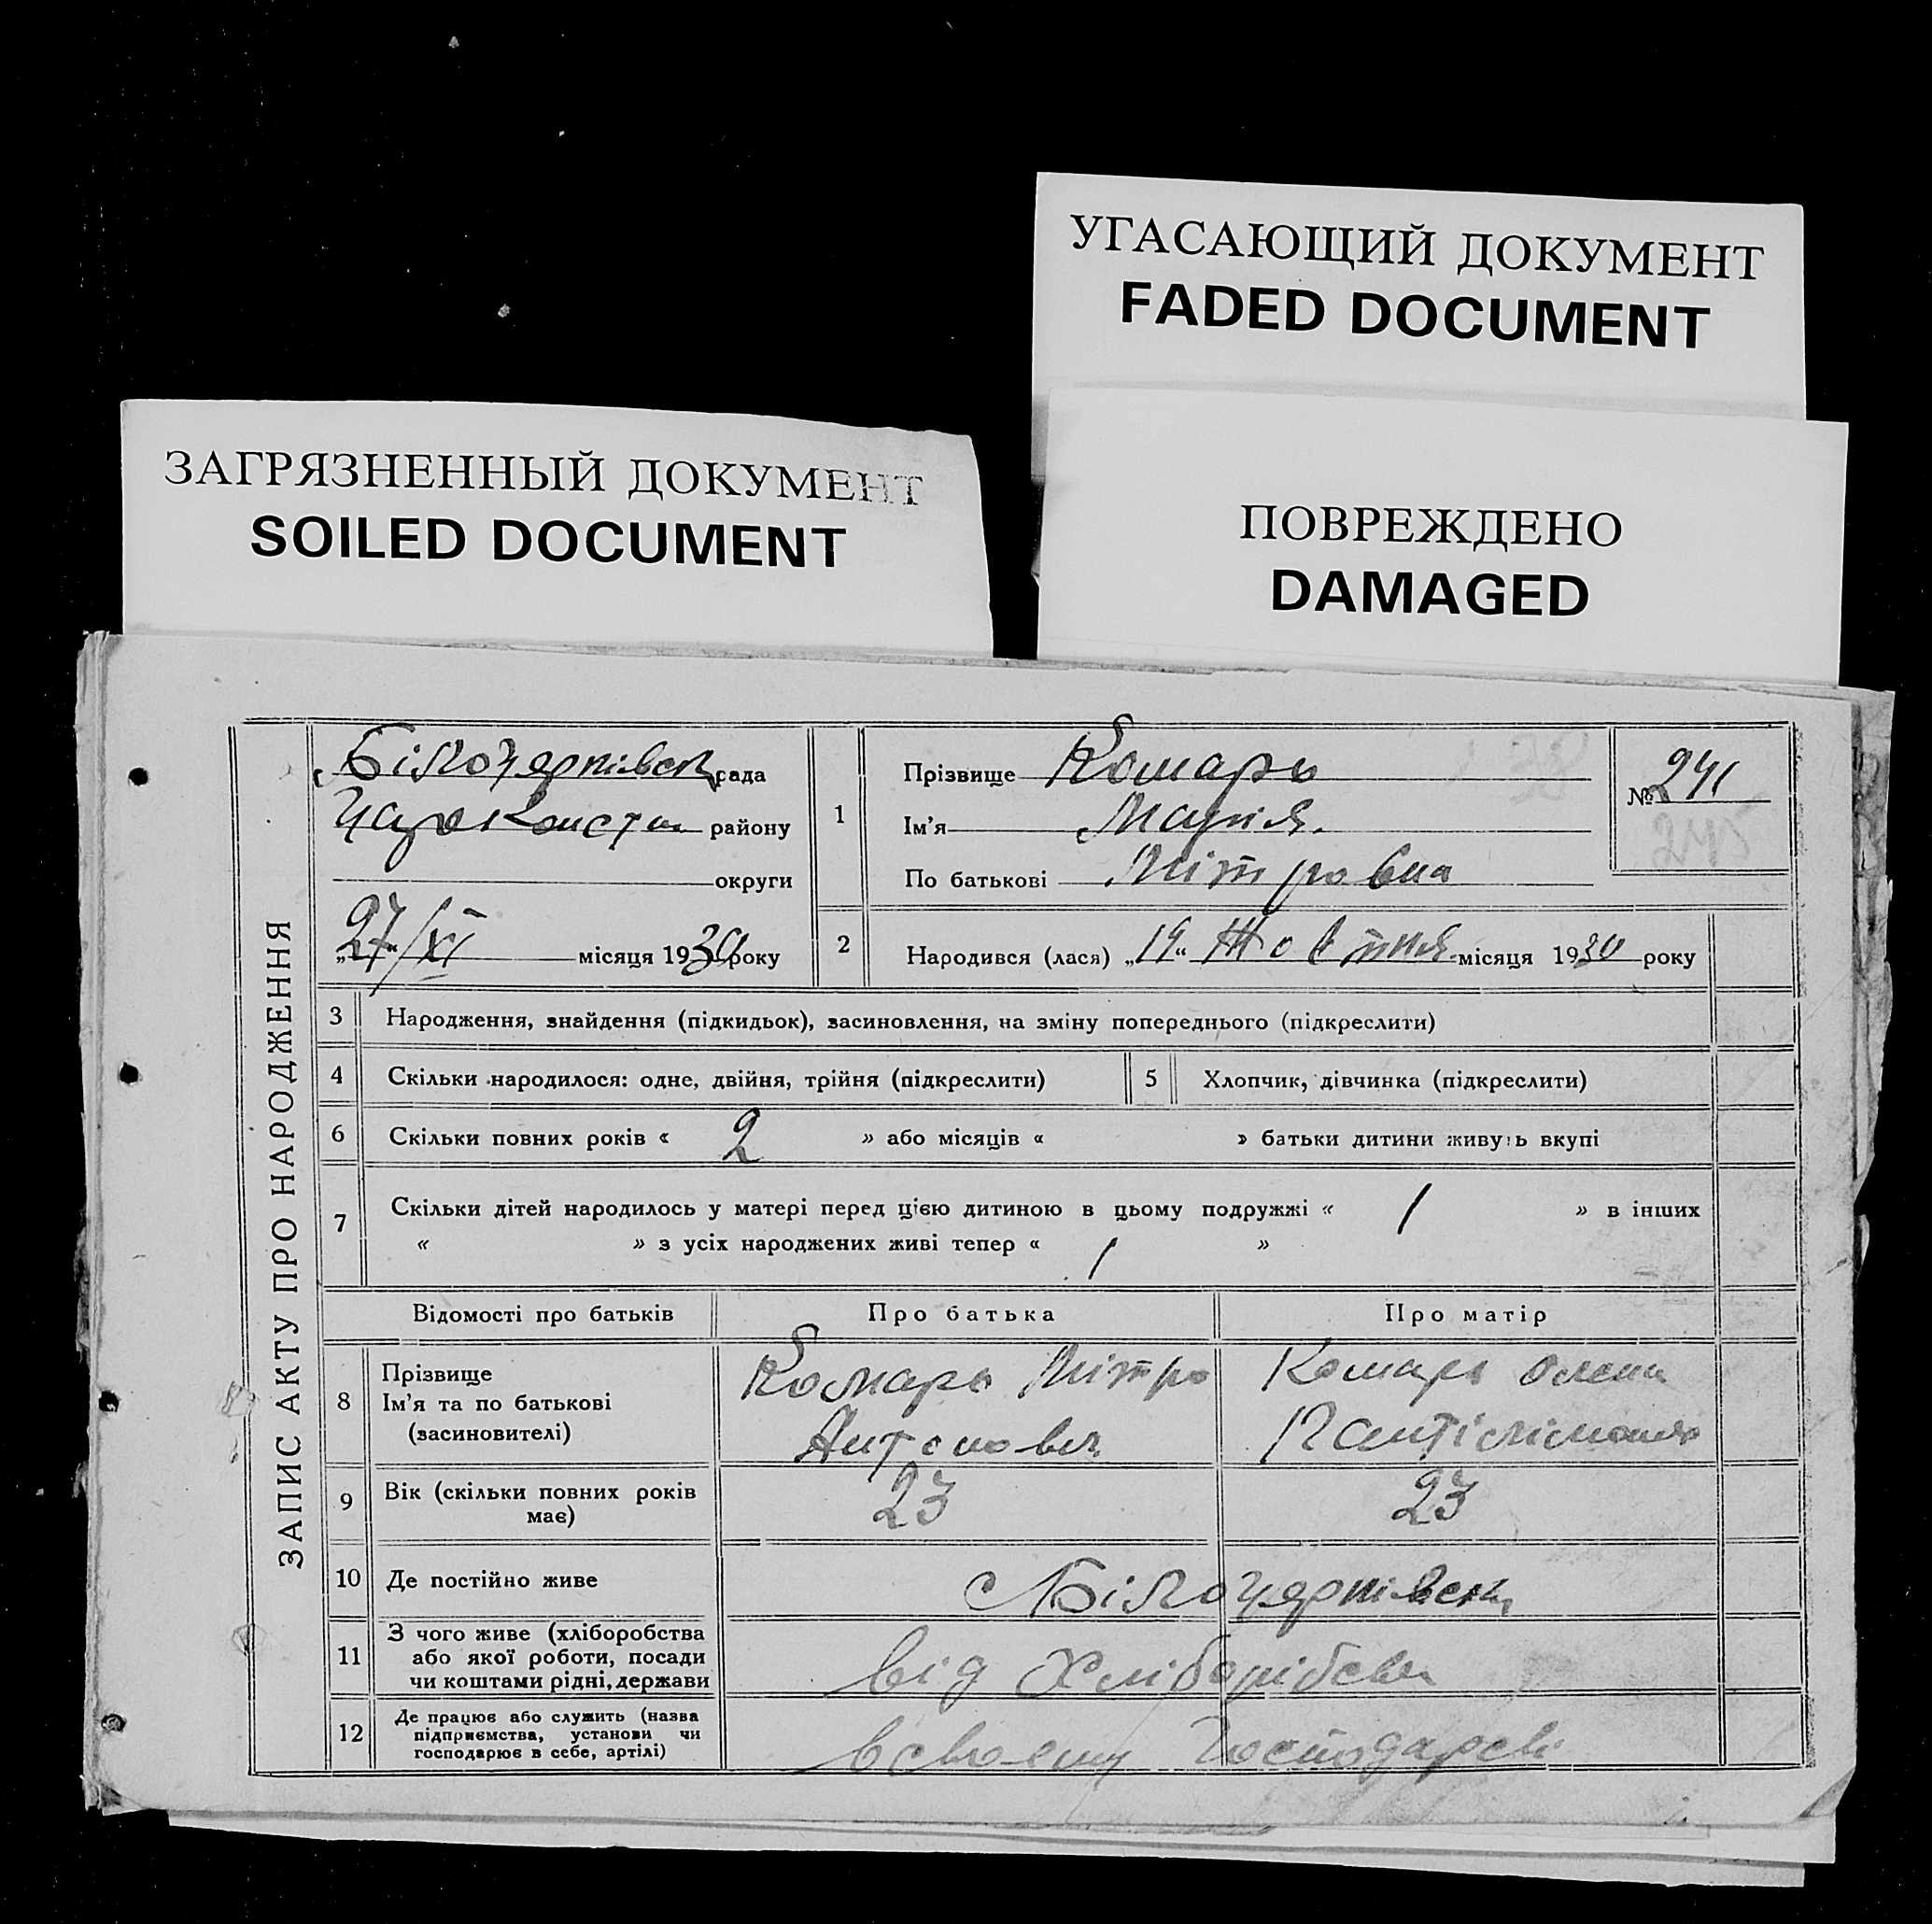 УГАСАЮЩИЙ ДОКУМЕНТ
FADED DOCUMENT
ЗАГРЯЗНЕННЫЙ ДОКУМЕНТ
SOILED DOCUMENT
ПОВРЕЖДЕНО
DAMAGED
ЗАПИС АКТУ ПРО НАРОДЖЕННЯ
рада
району
округи
27/XI місяця 1930 року
1
Прізвище Комарь
Ім'я Марія.
По батькові Мітровна
№ 241
245
2
Народився (лася) „19“ Жовтня місяця 1930 року
3 Народження, знайдення (підкидьок), засиновлення, на зміну попереднього (підкреслити)
4 Скільки народилося: одне, двійня, трійня (підкреслити)
5 Хлопчик, дівчинка (підкреслити)
6 Скільки повних років « 2 » або місяців « » батьки дитини живуть вкупі
7 Скільки дітей народилось у матері перед цією дитиною в цьому подружжі « 1 » в інших
« » з усіх народжених живі тепер « 1 »
Відомості про батьків Про батька Про матір
8 Прізвище
Ім'я та по батькові
(засиновителі)
Комарь Мітро
Антонович
Комарь Олена
9 Вік (скільки повних років
має)
23
23
10 Де постійно живе
11 З чого живе (хліборобства
або якої роботи, посади
чи коштами рідні, держави
від
12 Де працює або служить (назва
підприємства, установи чи
господарює в себе, артілі)
всвоєму господарсві